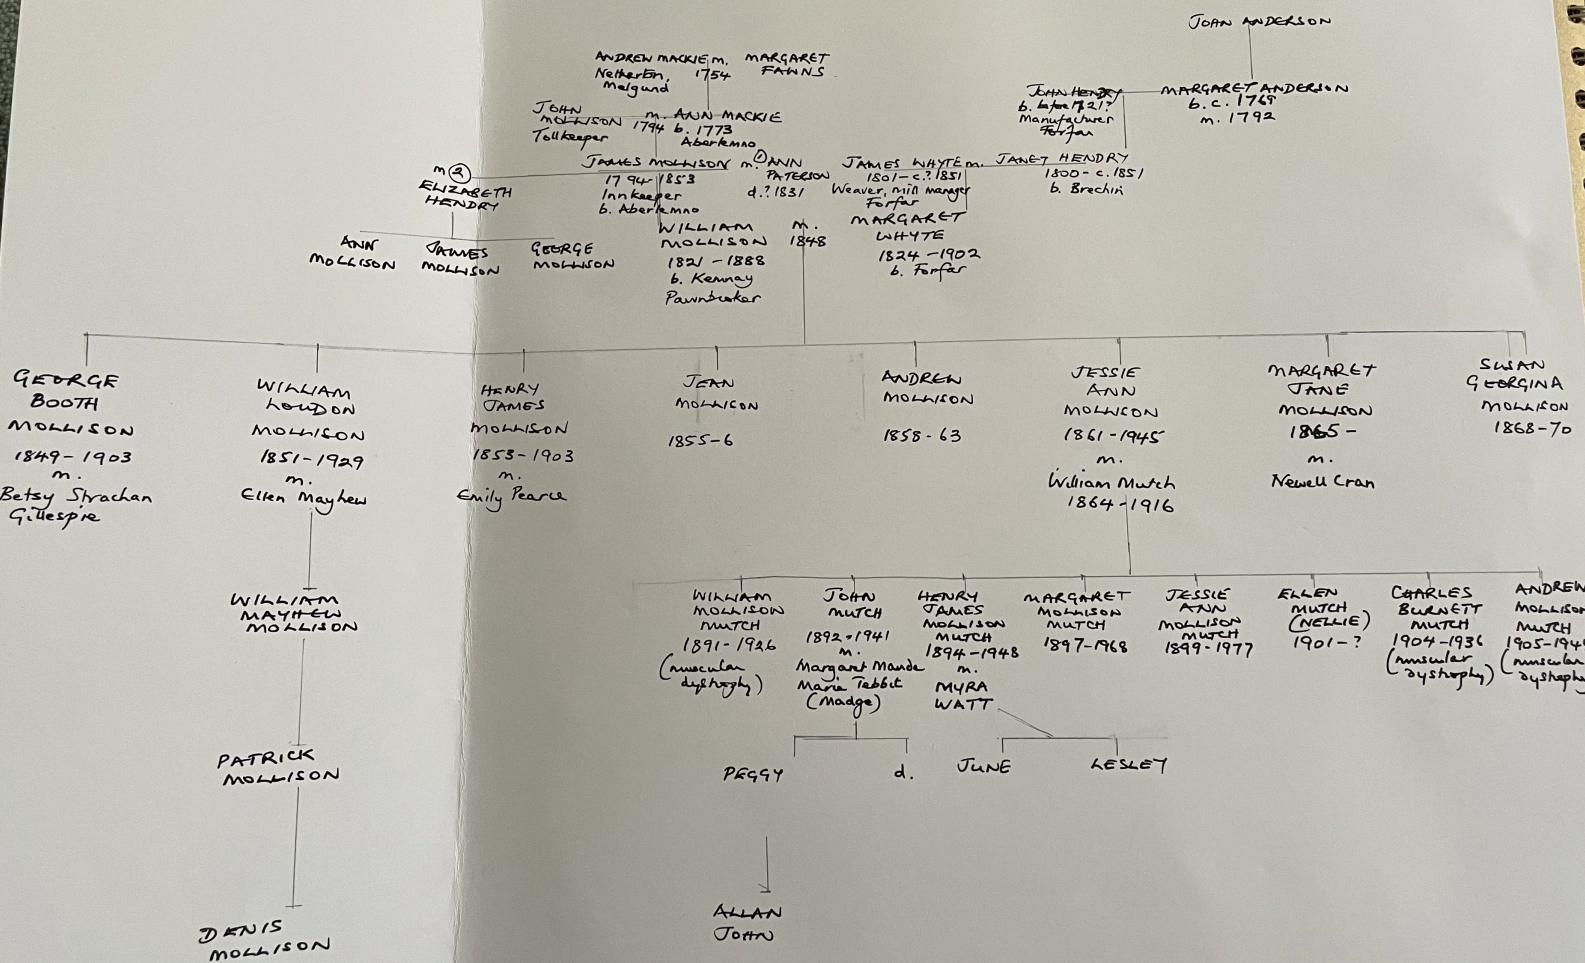 JOHN ANDERSON
ANDREW MACKIE m. MARGARET
Netherton, 1754 FAWNS
Melgund
JOHN HENRY
b. before 1721?
Manufacturer
Forfar
MARGARET ANDERSON
b. c. 1769
m. 1792
JOHN
MOLLISON
Tollkeeper
m.
1794
ANN MACKIE
b. 1773
Aberlemno
m ②
ELIZABETH
HENDRY
JAMES MOLLISON
1794-1853
Innkeeper
b. Aberlemno
m. ① ANN
PATERSON
d.? 1831
JAMES WHYTE m.
1801-c.? 1851
Weaver, mill manager
Forfar
JANET HENDRY
1800 - c. 1851
b. Brechin
ANN
MOLLISON
JAMES
MOLLISON
GEORGE
MOLLISON
WILLIAM
MOLLISON
1821 - 1888
b. Kemnay
Pawnbroker
m.
1848
MARGARET
WHYTE
1824 - 1902
b. Forfar
GEORGE
BOOTH
MOLLISON
1849 - 1903
m.
Betsy Strachan
Gillespie
WILLIAM
LOUDON
MOLLISON
1851-1929
m.
Ellen Mayhew
HENRY
JAMES
MOLLISON
1853-1903
m.
Emily Pearce
JEAN
MOLLISON
1855-6
ANDREW
MOLLISON
1858-63
JESSIE
ANN
MOLLISON
1861-1945
m.
William Mutch
1864-1916
MARGARET
JANE
MOLLISON
1865 -
m.
Newell Cran
SUSAN
GEORGINA
MOLLISON
1868-70
WILLIAM
MAYHEW
MOLLISON
WILLIAM
MOLLISON
MUTCH
1891-1926
(muscular
dystrophy)
JOHN
MUTCH
1892-1941
m.
Margaret Maude
Marie Tebbit
(Madge)
HENRY
JAMES
MOLLISON
MUTCH
1894-1948
m.
MYRA
WATT
MARGARET
MOLLISON
MUTCH
1897-1968
JESSIE
ANN
MOLLISON
MUTCH
1899-1977
ELLEN
MUTCH
(NELLIE)
1901-?
CHARLES
BURNETT
MUTCH
1904-1936
(muscular
dystrophy)
ANDREW
MOLLISON
MUTCH
1905-194
(muscular
dystrophy
PATRICK
MOLLISON
PEGGY
d.
JUNE
LESLEY
DENIS
MOLLISON
ALLAN
JOHN